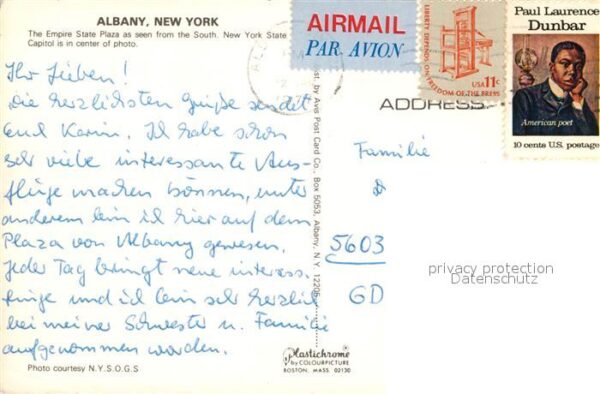 ALBANY, NEW YORK
The Empire State Plaza as seen from the South. New York State
Capitol is in center of photo.
AIRMAIL
PAR AVION
LIBERTY DEPENDS ON FREEDOM OF THE PRESS
USA 11c
Paul Laurence
Dunbar
American poet
10 cents U.S. postage
ADDRESS
Ihr Lieben!
Die herzlichsten Grüße sendet
Euch Karin. Ich habe schon
sehr viele interessante Aus-
flüge machen können, unter
anderem bin ich hier auf dem
Plaza von Albany gewesen.
Jeder Tag bringt neue interess.
und ich bin sehr herzlich
bei meiner Schwester u. Familie
aufgenommen worden.
Dist. by Avis Post Card Co., Box 5053, Albany, N.Y. 12205
Familie
5603
GD
privacy protection
Datenschutz
Plastichrome
by COLOURPICTURE
BOSTON, MASS. 02130
Photo courtesy N.Y.S.O.G.S